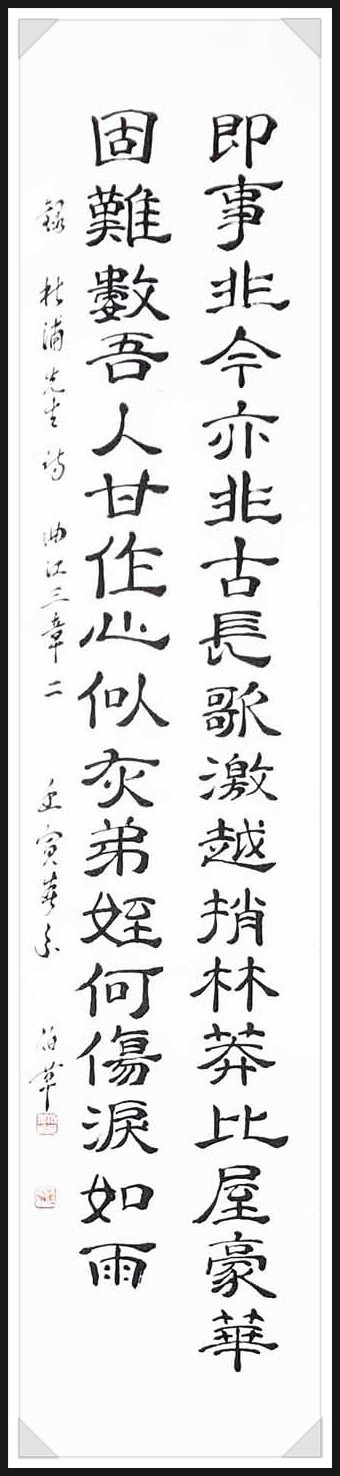 即事非今亦非古長歌激越捎林莽比屋豪華
固難數吾人甘作心似灰弟姪何傷淚如雨
錄 杜浦先生詩 曲江三章二 壬寅春